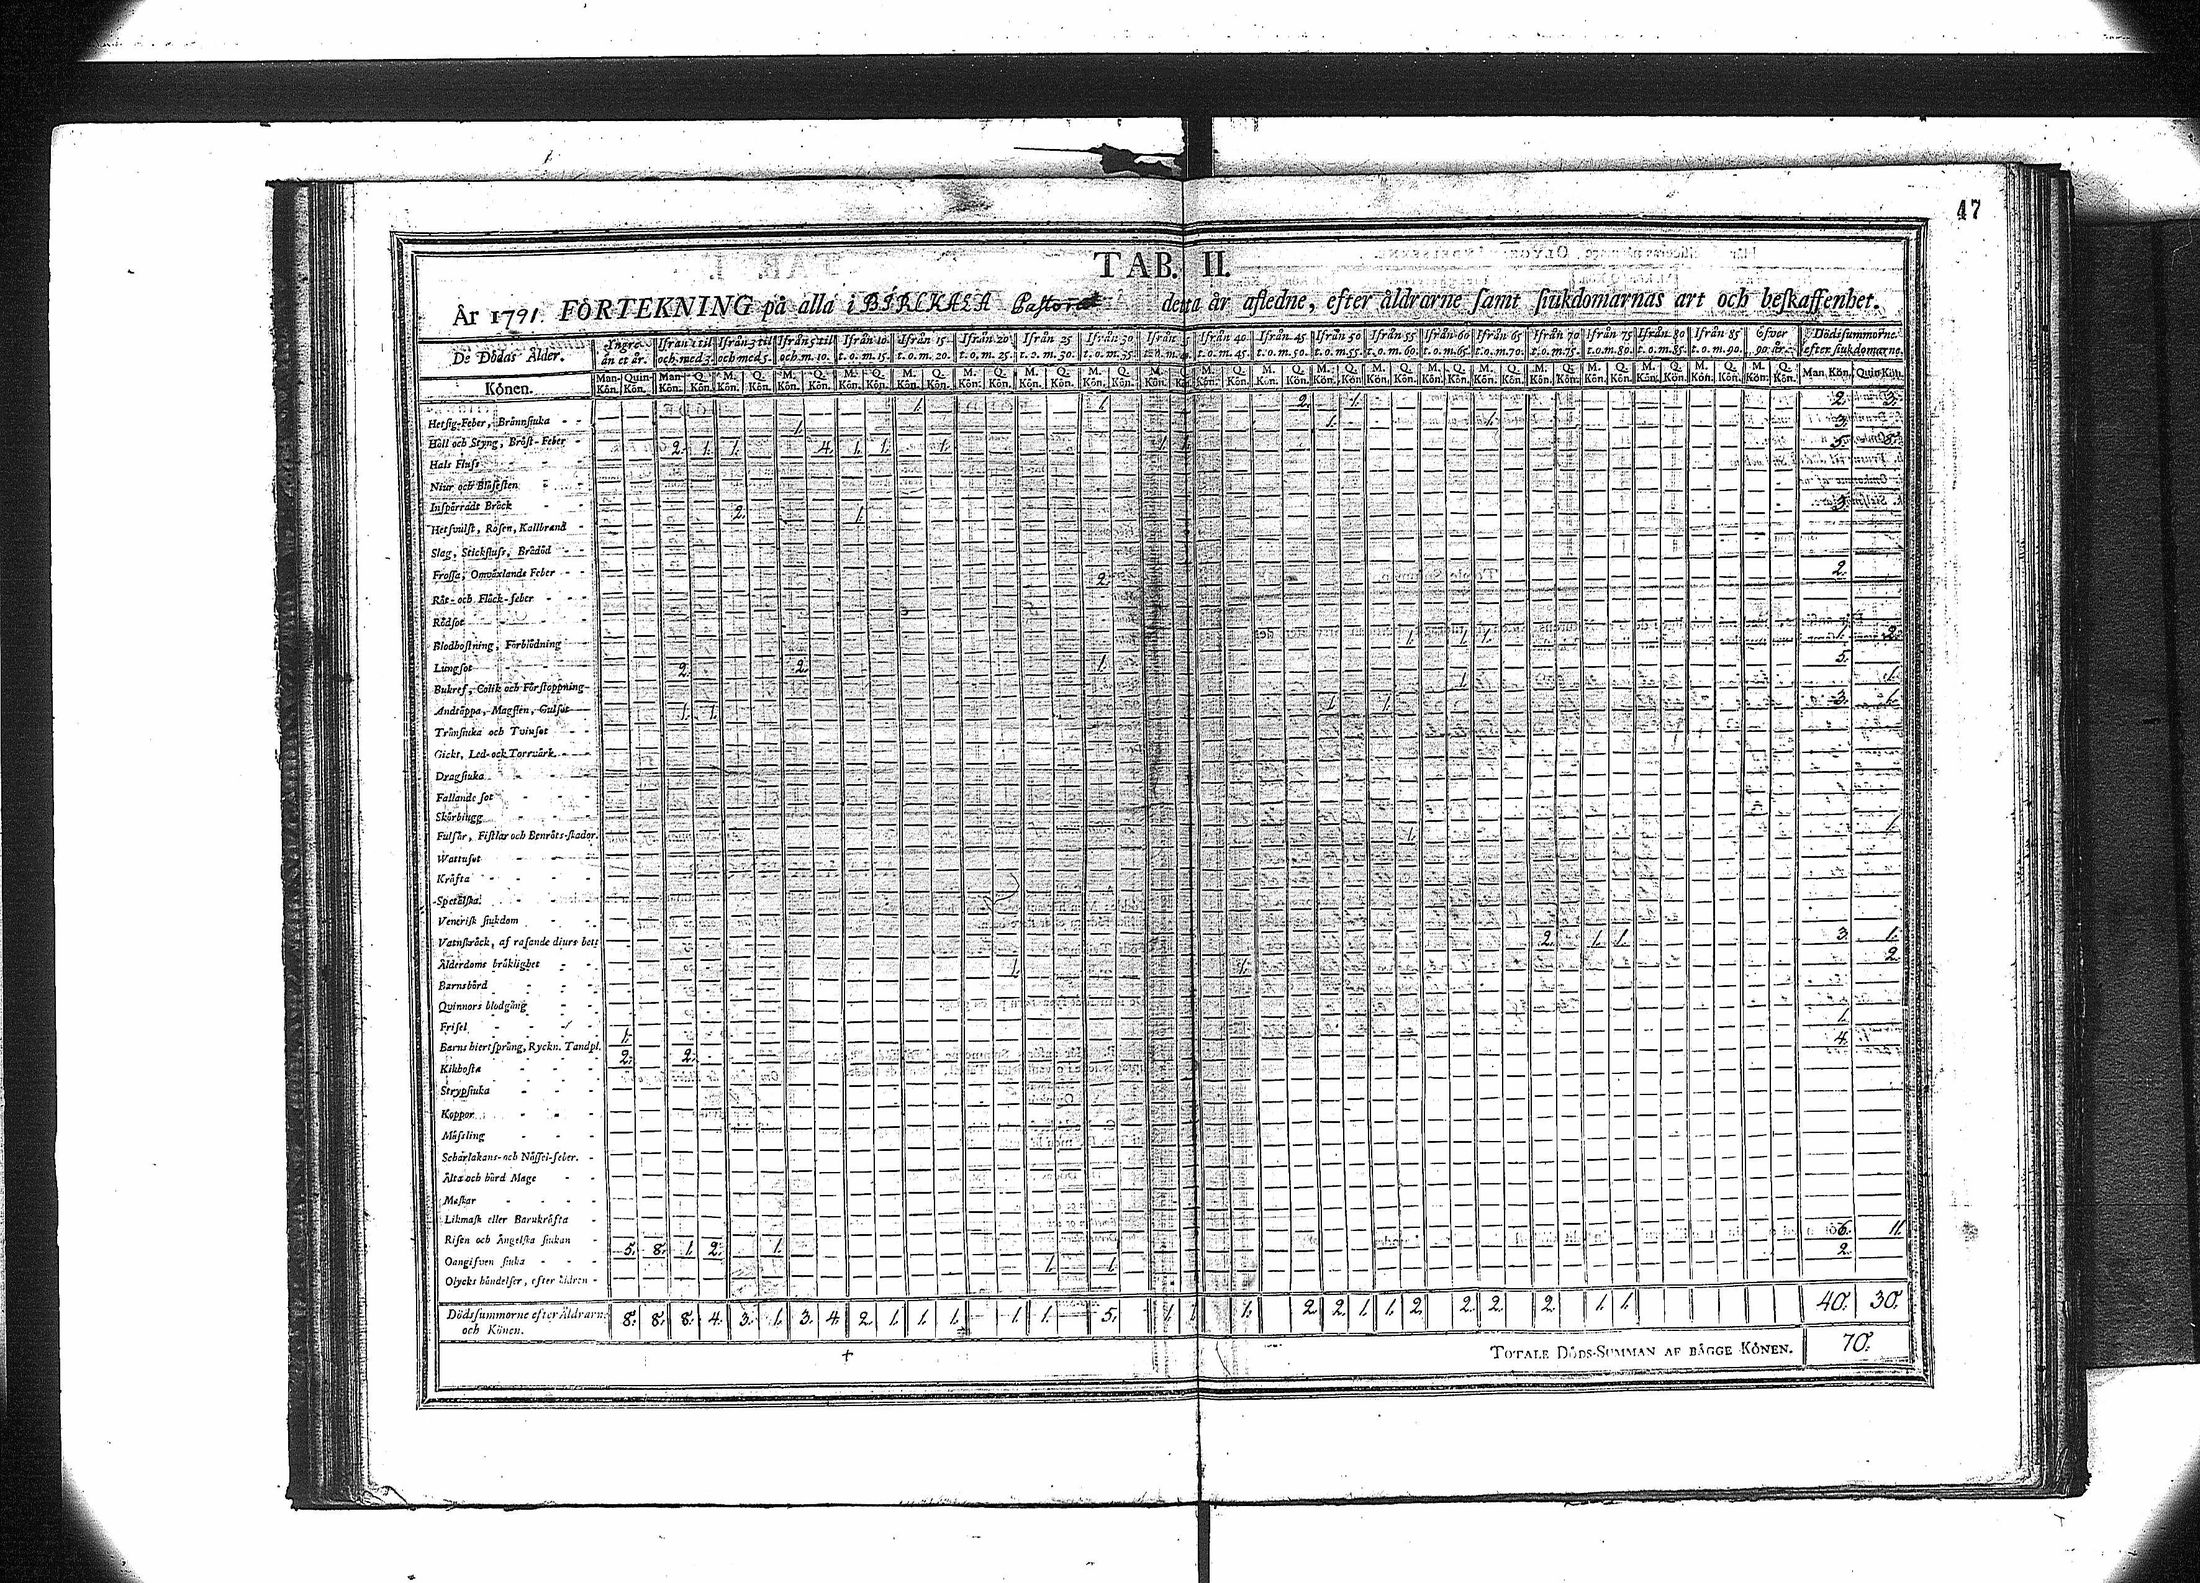 47
TAB. II.
År 1791. FÖRTEKNING på alla i BIRCKALA Pastorat detta år afledne, efter åldrarne samt siukdomarnas art och beskaffenhet.
De Dödas Ålder. Yngre än et år. Ifrån 1 til och med 3. Ifrån 3 til och med 5. Ifrån 5 til och m. 10. Ifrån 10 t. o. m. 15. Ifrån 15 t. o. m. 20. Ifrån 20 t. o. m. 25. Ifrån 25 t. o. m. 30. Ifrån 30 t. o. m. 35. Ifrån 35 t. o. m. 40. Ifrån 40 t. o. m. 45. Ifrån 45 t. o. m. 50. Ifrån 50 t. o. m. 55. Ifrån 55 t. o. m. 60. Ifrån 60 t. o. m. 65. Ifrån 65 t. o. m. 70. Ifrån 70 t. o. m. 75. Ifrån 75 t. o. m. 80. Ifrån 80 t. o. m. 85. Ifrån 85 t. o. m. 90. Öfver 90 år. Dödssummorne efter siukdomarne.
Könen. Man-Kön. Quin-Kön. Man-Kön. Q. Kön. M. Kön. Q. Kön. M. Kön. Q. Kön. M. Kön. Q. Kön. M. Kön. Q. Kön. M. Kön. Q. Kön. M. Kön. Q. Kön. M. Kön. Q. Kön. M. Kön. Q. Kön. M. Kön. Q. Kön. M. Kön. Q. Kön. M. Kön. Q. Kön. M. Kön. Q. Kön. M. Kön. Q. Kön. M. Kön. Q. Kön. M. Kön. Q. Kön. M. Kön. Q. Kön. M. Kön. Q. Kön. M. Kön. Q. Kön. M. Kön. Q. Kön. Man. Kön. Quin-Kön.
Hetsig-Feber, Brännsiuka 1. 1. 2. 1. 2. 3.
Håll och Styng, Bröst-Feber 1. 1. 1. 3.
Hals Fluss 2. 1. 1. 4. 1. 1. 1. 1. 1. 5. 8.
Niur och Blåsesten
Inspärradt Bråck
Hetsvulst, Rosen, Kallbrand 2. 1. 3.
Slag, Stickfluss, Brådöd
Frossa, Omväxlande Feber
Röt- och Fläck-feber 2. 2.
Rödsot
Blodhostning, Förblödning
Lungsot 1. 1. 1. 1. 2.
Bukref, Colik och Förstoppning 2. 2. 1. 5.
Andtäppa, Magsten, Gulsot 1. 1.
Trånsiuka och Tvinsot 1. 1. 1. 1. 3. 1.
Gickt, Led- ock Torrvärk
Dragsiuka
Fallande sot
Skörbiugg
Fulsår, Fistlar och Benröts-skador.
Wattusot 1. 1.
Kräfta
Spetälska
Venerisk siukdom
Vatnskräck, af rasande diurs bett
Ålderdoms bräklighet 2. 1. 1. 3. 1.
Barnsbörd 1. 1. 2.
Quinnors blodgång
Frisel
Barns hiertsprång, Ryckn. Tandpl. 1. 1.
Kikhosta 2. 2. 4.
Strypsiuka
Koppor
Mässling
Scharlakans- och Nässel-feber.
Älta och hård Mage
Maskar
Likmask eller Barnkräfta
Risen och Ängelska siukan
Oangifven siuka 5. 8. 1. 2. 1. 6. 11.
Olycks händelser, efter åldren 1. 1. 2.
Dödssummorne efter Åldrarne och Könen. 8. 8. 8. 4. 3. 1. 3. 4. 2. 1. 1. 1. 1. 1. 5. 1. 1. 1. 2. 2. 1. 1. 2. 2. 2. 2. 1. 1. 40. 30.
TOTALE DÖDS-SUMMAN AF BÄGGE KÖNEN. 70.